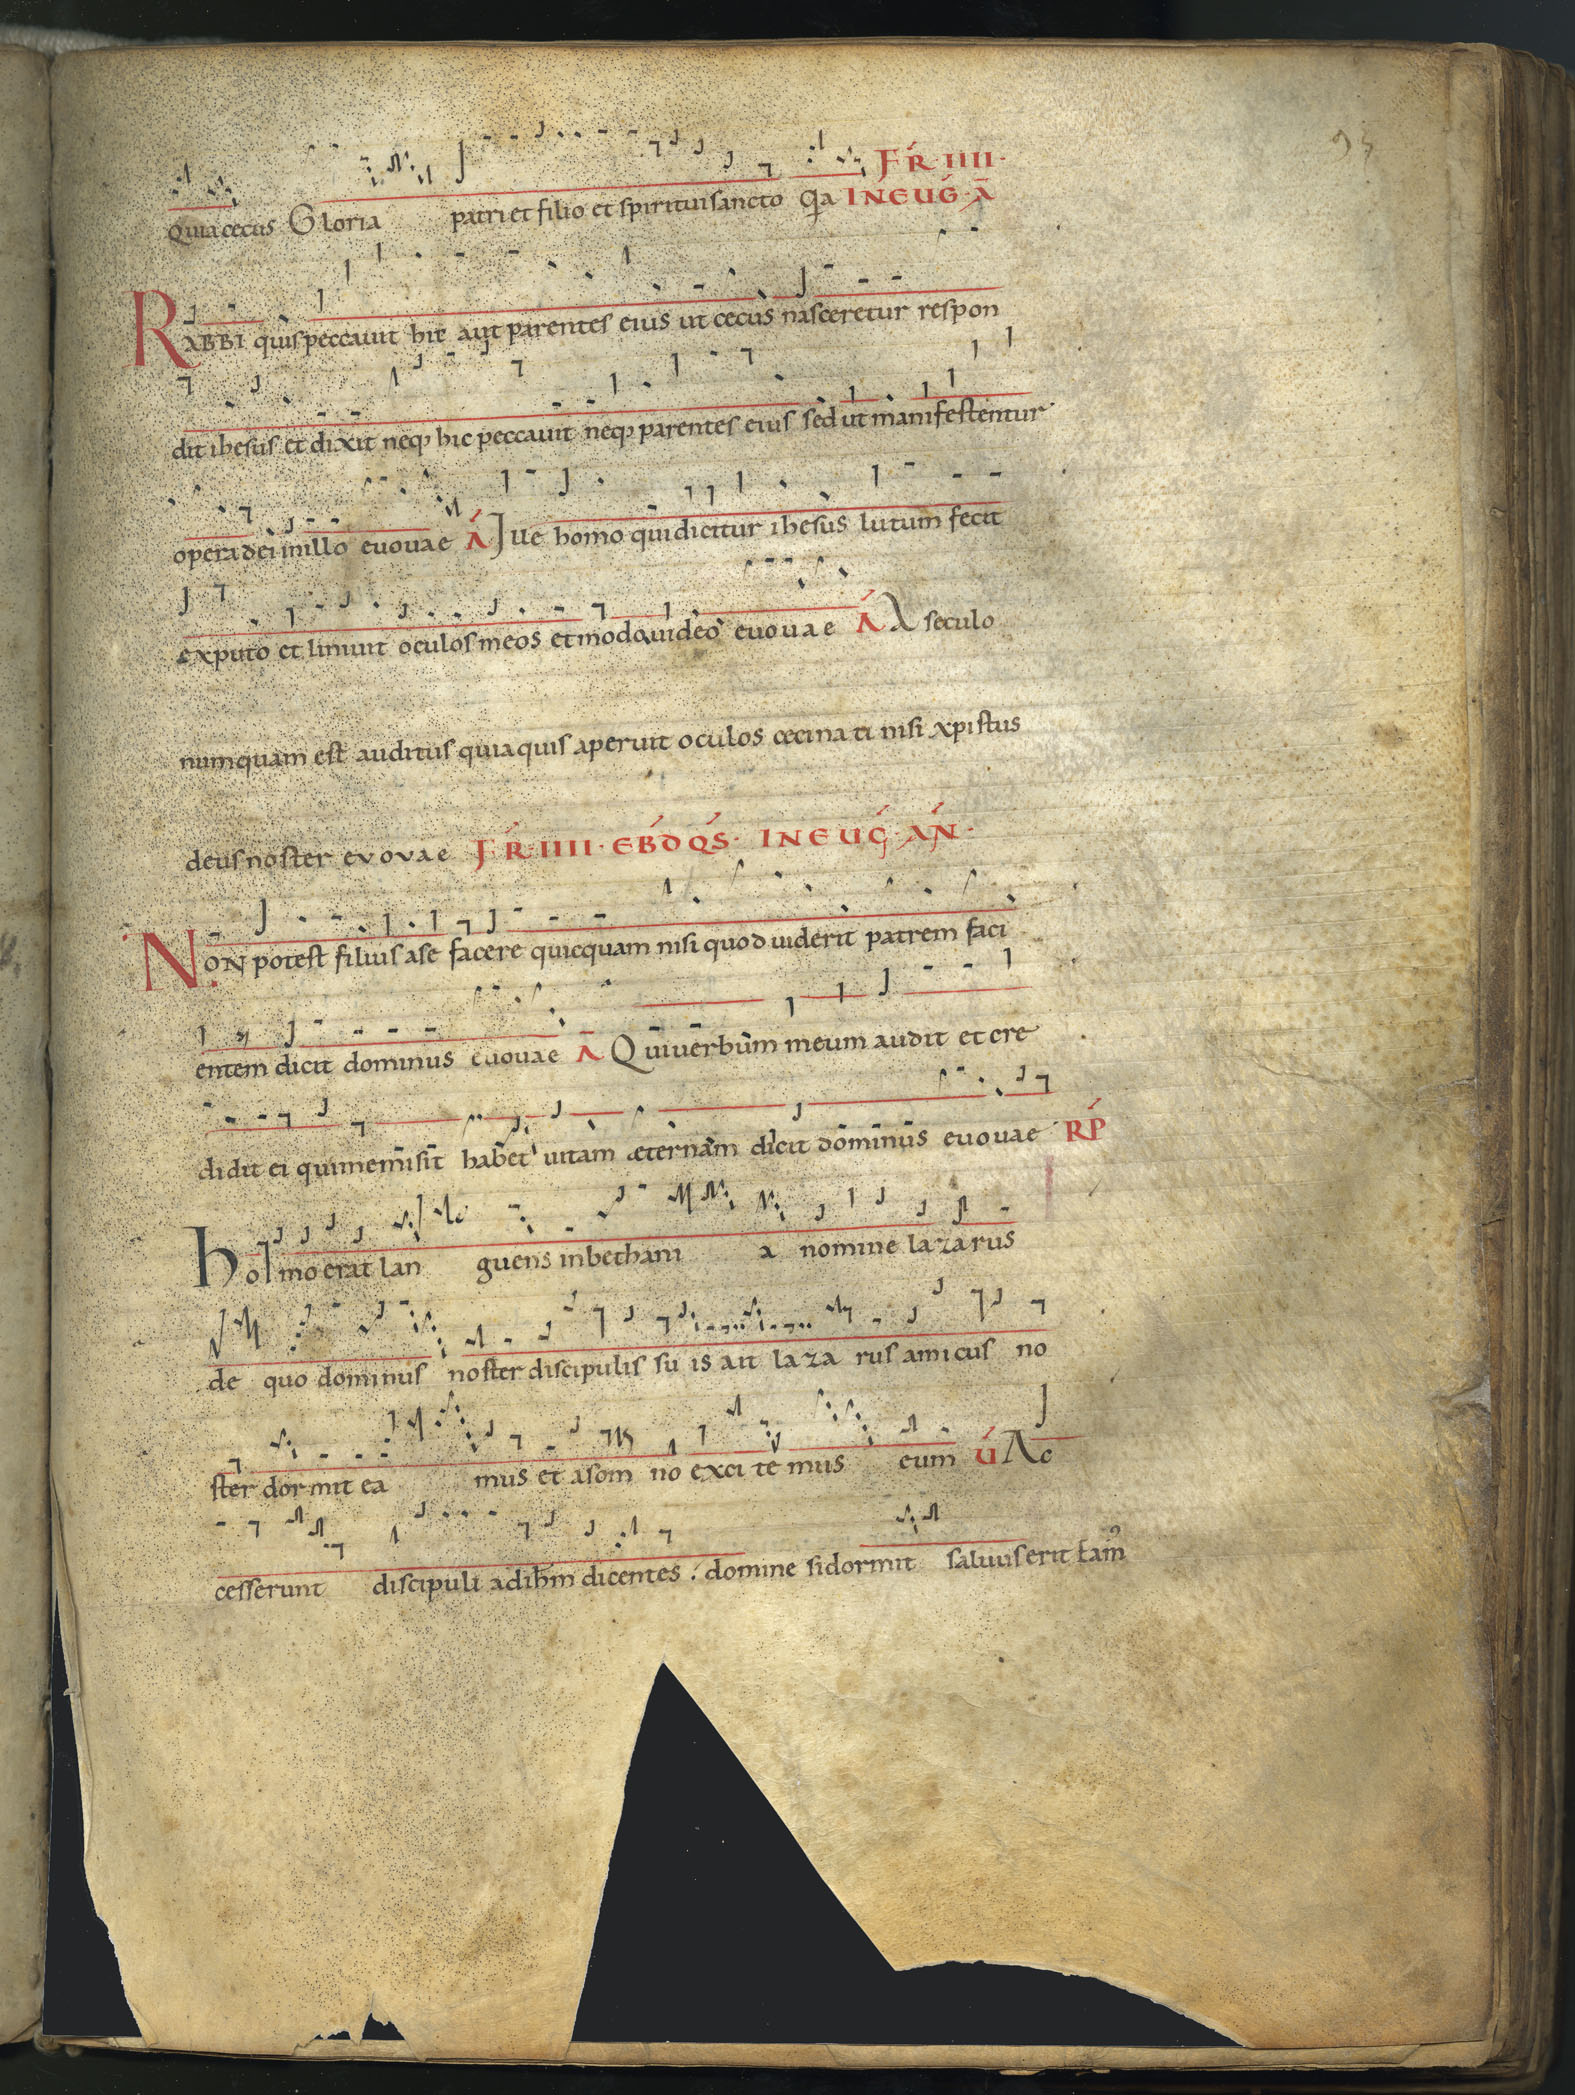 FR·IIII·
Quia cecus Gloria patri et filio et spiritui sancto Q̄a INEUG·Ā
RABBI quis peccauit hic aut parentes eius ut cecus nasceretur respon
dit ihesus et dixit neq; hic peccauit neq; parentes eius sed ut manifestentur
opera dei in illo euouae Á Ille homo qui dicitur ihesus lutum fecit
exputo et liniuit oculos meos et modo uideo euouae Á A seculo
numquam est auditus quia quis aperuit oculos cecina ti nisi xpistus
deus noster evovae FR·IIII·EBDQS· INEUG·AN·
NON potest filius a se facere quicquam nisi quod uiderit patrem faci
entem dicit dominus euouae Ā Qui uerbum meum audit et cre
didit ei qui me misit habet uitam æternam dicit dominus euouae RP
Hol mo erat lan guens in bethani a nomine lazarus
de quo dominus noster discipulis su is ait la za rus amicus no
ster dor mit ea mus et a som no exci te mus eum Ú Ac
cesserunt discipuli ad ihm dicentes : domine si dormit saluus erit tam